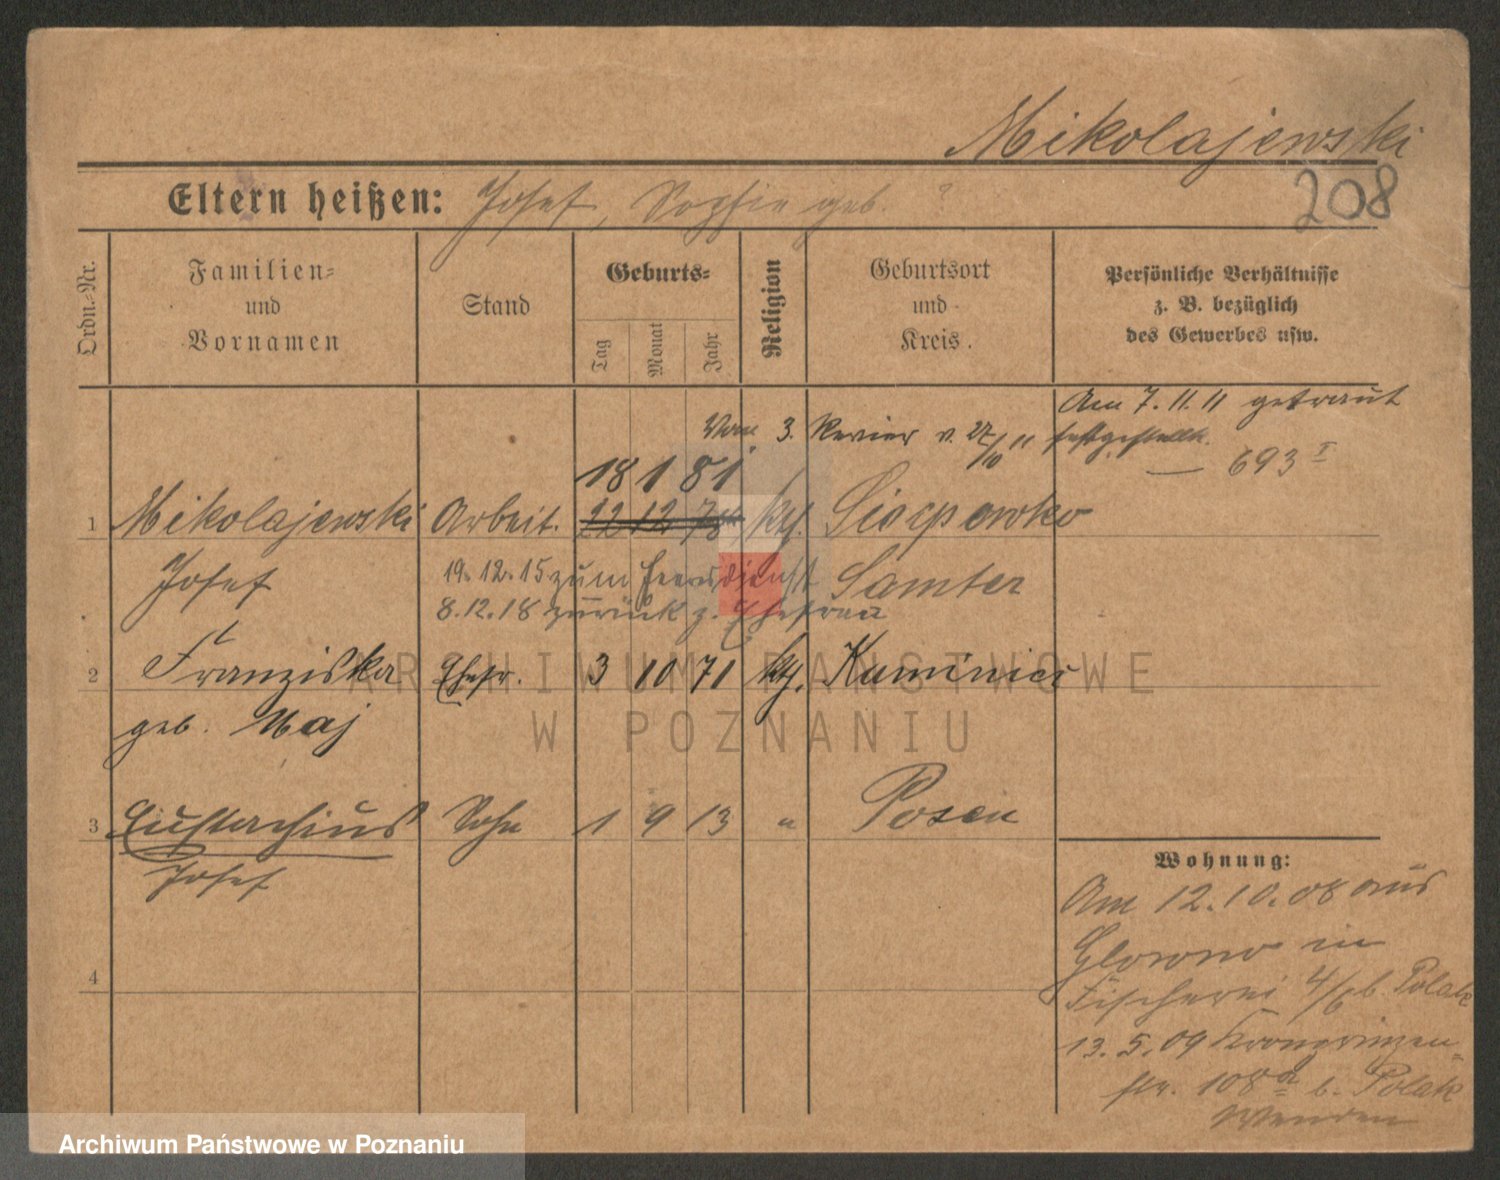 Mikolajewski
208
Eltern heißen: Josef, Sophie geb. ?
Ordn.-Nr.
Familien-
und
Vornamen
Stand
Geburts-
Tag
Monat
Jahr
Religion
Geburtsort
und
Kreis.
Persönliche Verhältnisse
z. B. bezüglich
des Gewerbes usw.
Am 7.11.11 getraut
Vom 3. Revier v. 27/10 11 festgestellt.
— 693 I
18 1 81
1 Mikolajewski Arbeit. 22 12 78 kth.
Josef 19.12.15 zum Heeresdienst Samter
8.12.18 zurück z. Ehefrau
2 Franziska Ehefr. 3 10 71 kth.
geb. Maj
3 Eustachius Sohn 1 9 13 " Posen
Josef
4
Wohnung:
Am 12.10.08 aus
Glowno in
Fischerei 4/6 b. Polak
13.5.09 Kronprinzen-
str. 108a b. Polak
Wenden
ARCHIWUM PAŃSTWOWE
W POZNANIU
Archiwum Państwowe w Poznaniu